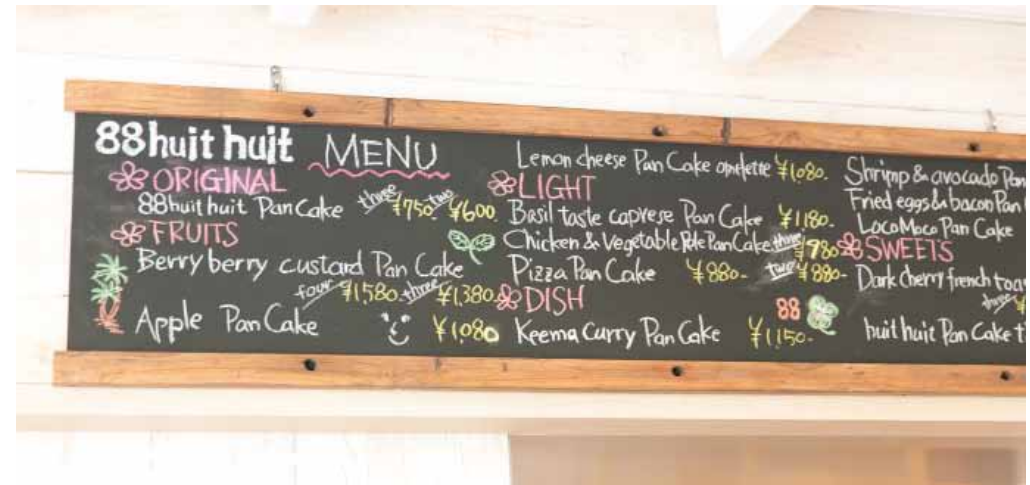 88 huit huit MENU
ORIGINAL
88 huit huit Pan Cake three ¥750 two ¥600
FRUITS
Berry berry custard Pan Cake
four ¥1,580. three ¥1,380.
Apple Pan Cake ¥1,080
Lemon cheese Pan Cake omelette ¥1,080.
LIGHT
Basil taste caprese Pan Cake ¥1180.
Chicken & Vegetable Pan Cake three ¥980
Pizza Pan Cake ¥880- two ¥880-
DISH
88
Keema curry Pan Cake ¥1,150-
Shrimp & avocado Pan
Fried eggs & bacon Pan
LocoMoco Pan Cake
SWEETS
Dark cherry french toa
three ¥
huit huit Pan Cake